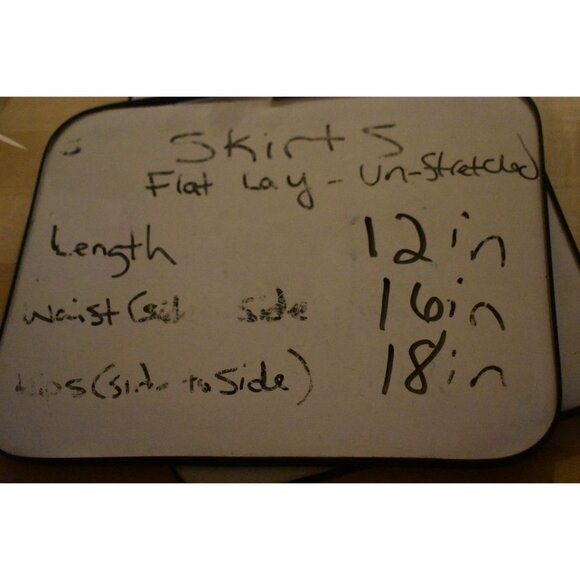 Skirts
Flat Lay - Un-Stretched
Length 12 in
Waist (side side 16 in
Hips (side to Side) 18 in